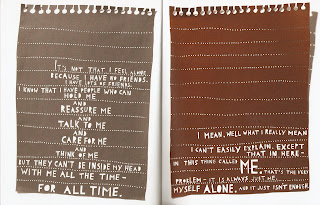 IT'S NOT THAT I FEEL ALONE
BECAUSE I HAVE NO FRIENDS.
I HAVE LOTS OF FRIENDS.
I KNOW THAT I HAVE PEOPLE WHO CAN
HOLD ME
AND
REASSURE ME
AND
TALK TO ME
AND
CARE FOR ME
AND
THINK OF ME
BUT THEY CAN'T BE INSIDE MY HEAD
WITH ME ALL THE TIME -
FOR ALL TIME.
I MEAN, WELL WHAT I REALLY MEAN
I CAN'T EASILY EXPLAIN. EXCEPT
THAT IN HERE -
IN THIS THING CALLED ME. THAT'S THE VERY
PROBLEM - IT IS ALWAYS JUST ME.
MYSELF ALONE. AND IT JUST ISN'T ENOUGH